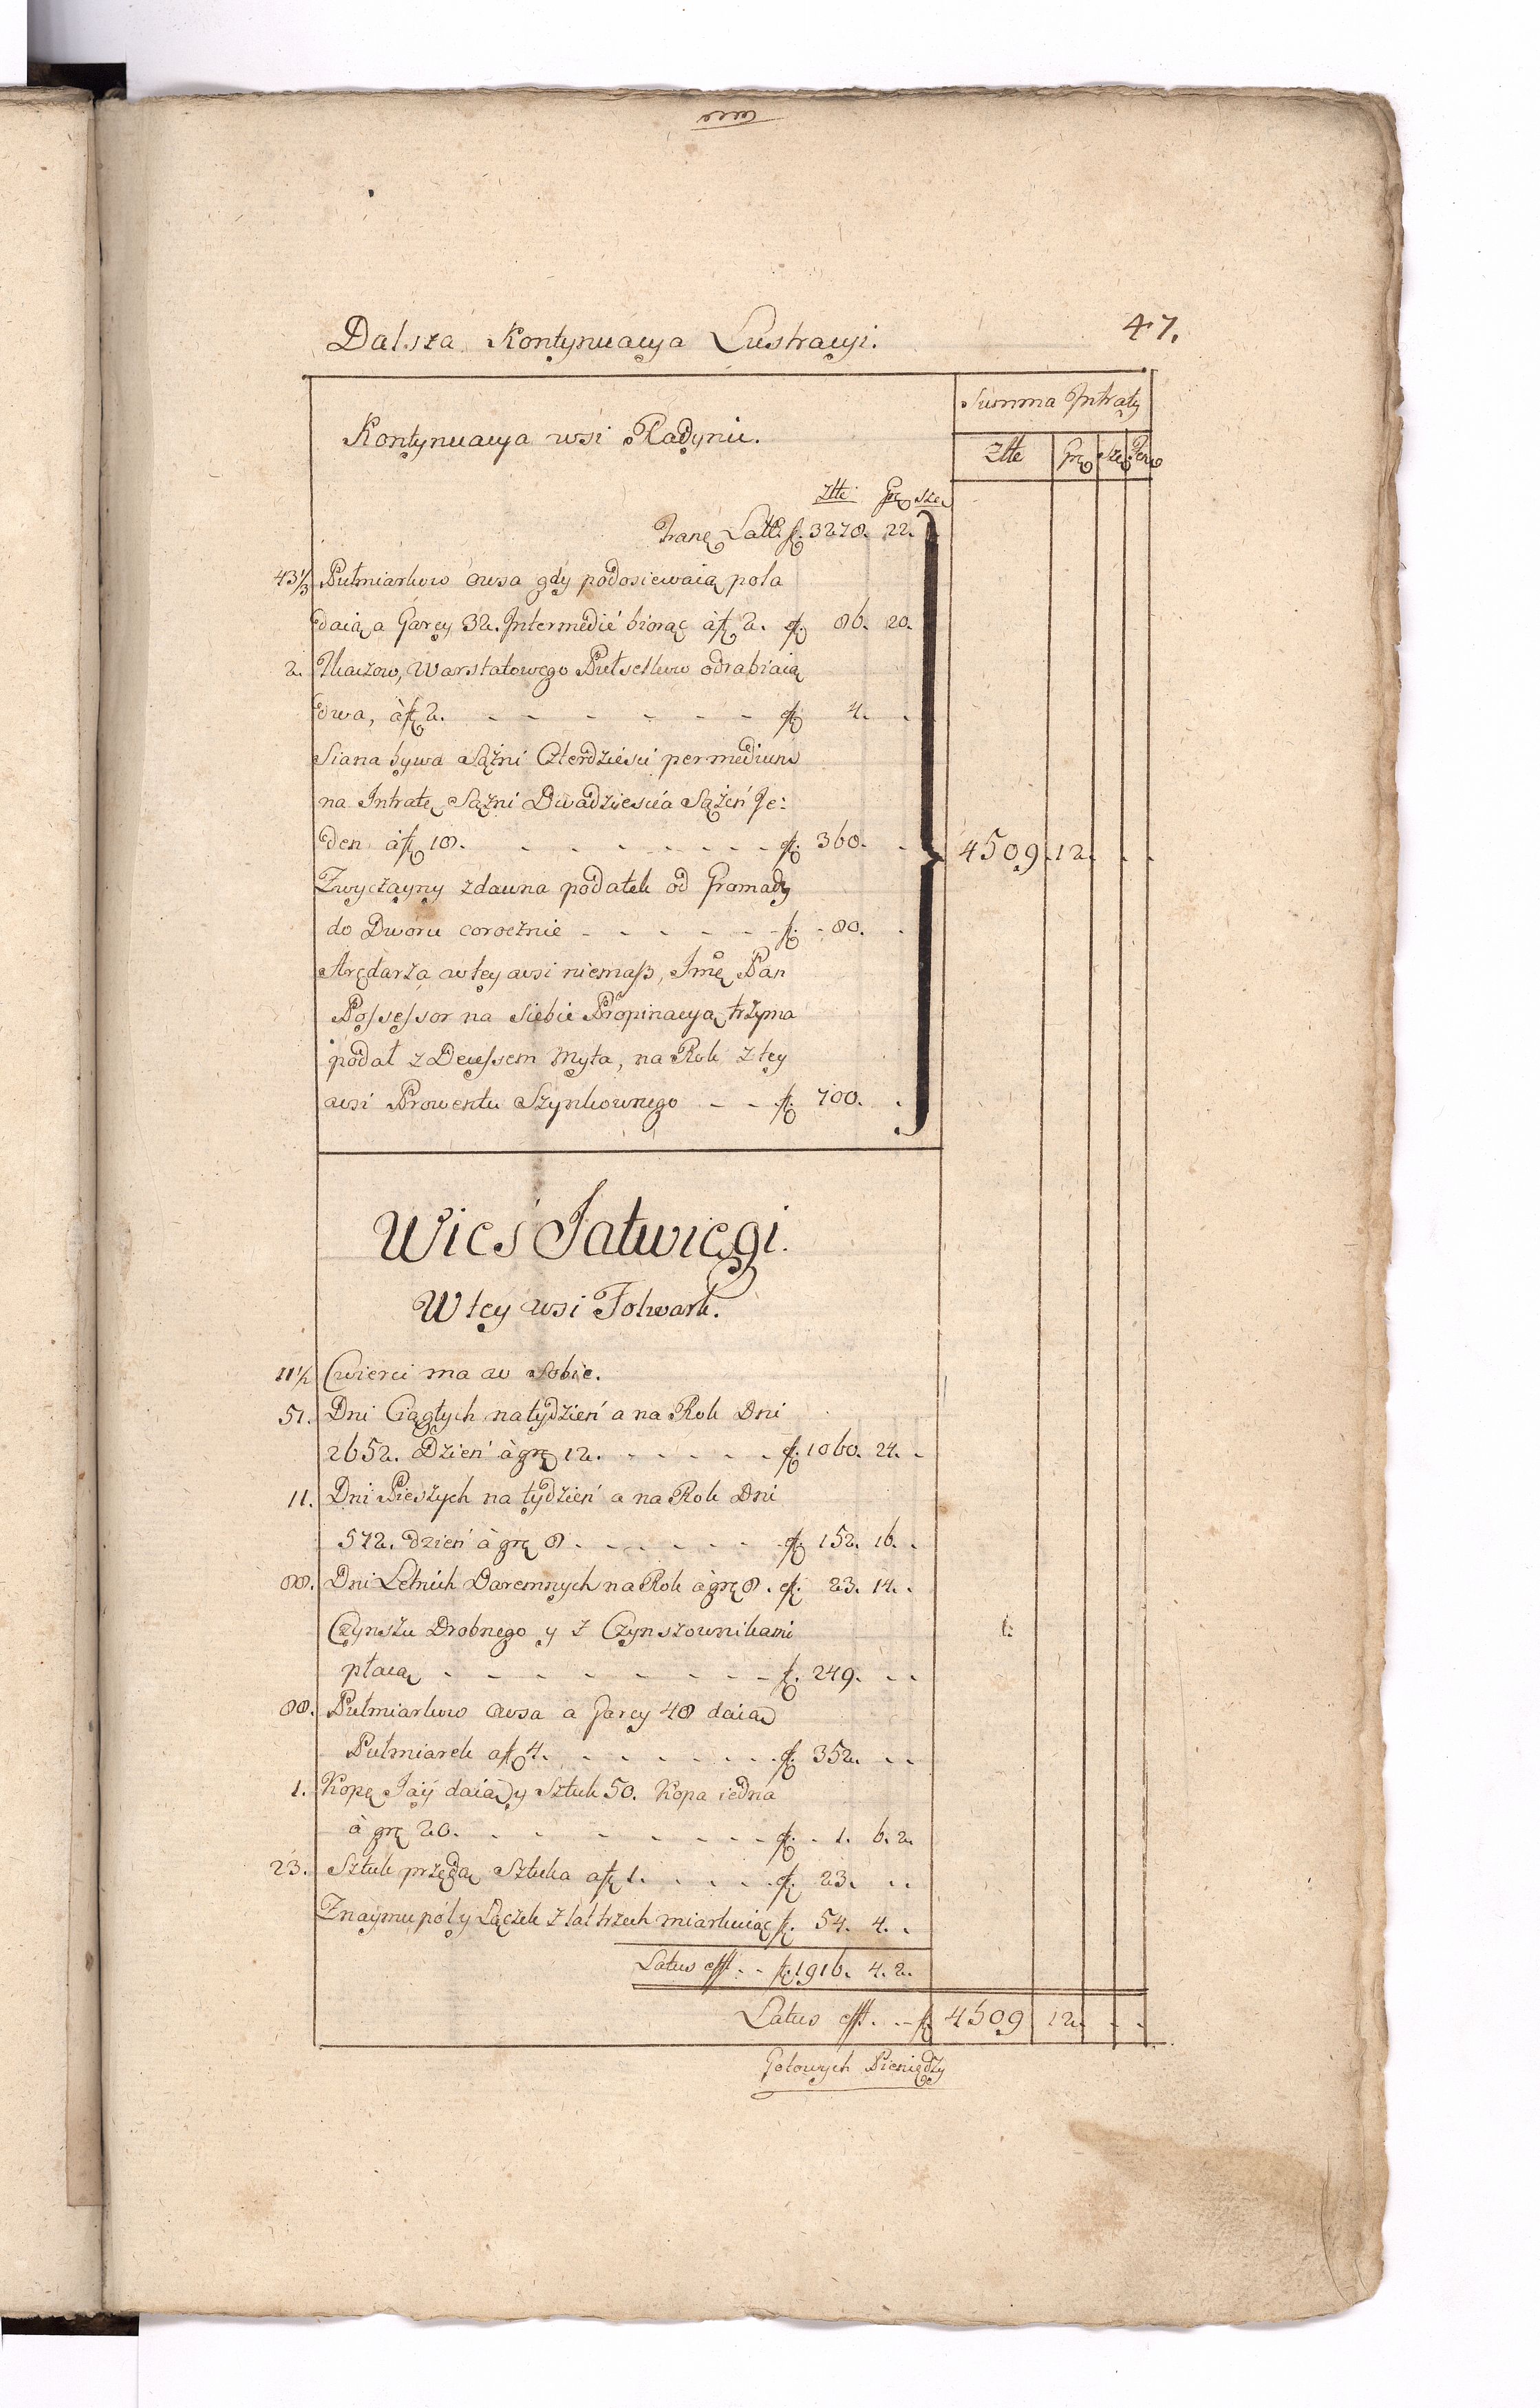 Dalsza Kontynuacya Lustracyi. 47.
Summa Intraty
Kontynuacya wsi Radynic.
Złłe Grę Szę
Złłe Grę Szę Den
Tranę Latt. f. 3278. 22.
43⅓ Pułmiarkow owsa gdy podosiewaią pola
daią a Garcy 32. Intermedié biorąc à f 2. f. 86. 20.
2. Tkaczow, Warstatowego Pułsetkow odrabiaią
dwa, à f 2. - - - - - - f 4. -
Siana bywa Sążni Czterdzieści permedium
na Intratę Sążni Dwadzieścia Sążeń Je:
den à f 18. - - - - - - f. 360. -
4509. 12. - -
Zwyczayny zdawna podatek od Gromady
do Dworu corocznie - - - - - f. 80. -
Arędarza w tey wsi niemasz, Jmę Pan
Possessor na siebie Propinacyą trzyma
podał z Decessem Myta, na Rok z tey
wsi Prowentu Szynkownego - - f. 700. -
Wieś Jatwięgi.
W tey wsi Folwark.
11½ Cwierci ma w sobie.
51. Dni Ciągłych na tydzień a na Rok Dni
2652. Dzień à grę 12. - - - - - f. 1060. 24. -
11. Dni Pieszych na tydzień a na Rok Dni
572. dzień à grę 8. - - - - - f. 152. 16. -
88. Dni Letnich Daremnych na Rok à grę 8. f. 23. 14. -
Czynszu Drobnego y z Czynszownikami
płacą - - - - - - - - f. 249. - -
88. Pułmiarkow owsa a Garcy 48 daią
Pułmiarek a f 4. - - - - - - f. 352. - -
1. Kopę Jaij daią y Sztuk 50. Kopa iedna
à grę 20. - - - - - - - f. - 1. 6. 2.
23. Sztuk przędą Sztuka a f 1. - - - - f. 23. - -
Znaymu pól y Łączek z lat trzech miarkuiąc f. 54. 4. -
Latus eff. - - f. 1916. 4. 2.
Latus eff. - - f. 4509 12. - -
Gotowych Pieniędzy